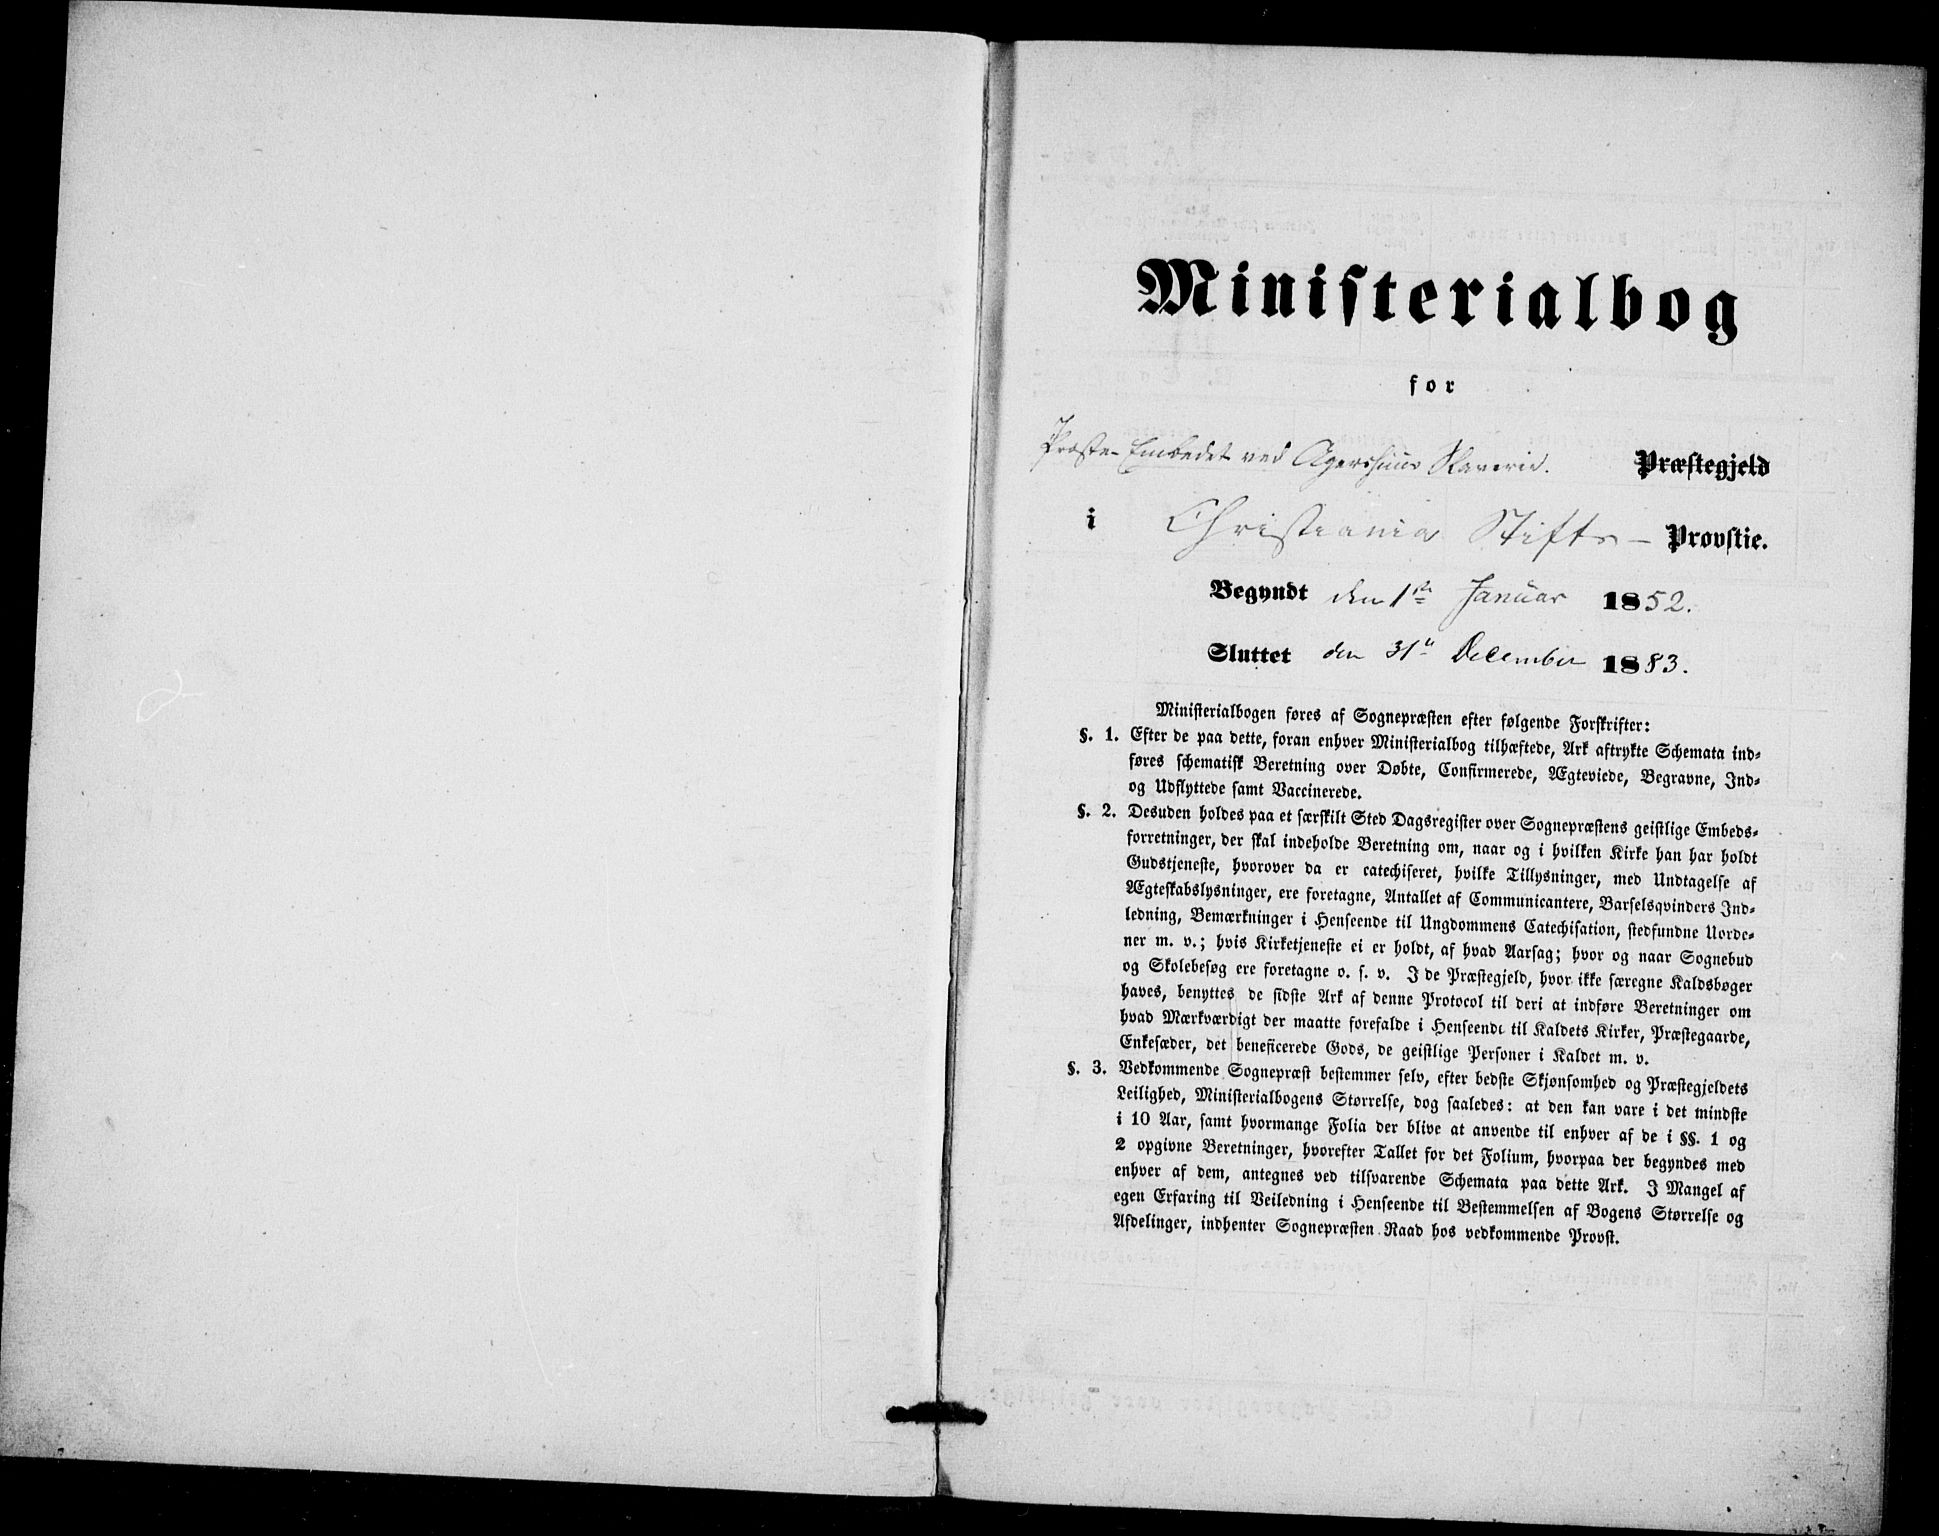 Ministerialbog
for
Præste-Embedet ved Agershuus Slaverie. Præstegjeld
i Christiania Stifts- Provstie.
Begyndt den 1ste Januar 1852.
Sluttet den 31te December 1883.
Ministerialbogen føres af Sognepræsten efter følgende Forskrifter:
§. 1. Efter de paa dette, foran enhver Ministerialbog tilhæftede, Ark aftrykte Schemata ind-
føres schematisk Beretning over Døbte, Confirmerede, Ægteviede, Begravne, Ind-
og Udflyttede samt Vaccinerede.
§. 2. Desuden holdes paa et særskilt Sted Dagsregister over Sognepræstens geistlige Embeds-
forretninger, der skal indeholde Beretning om, naar og i hvilken Kirke han har holdt
Gudstjeneste, hvorover da er catechiseret, hvilke Tillysninger, med Undtagelse af
Ægteskabslysninger, ere foretagne, Antallet af Communicantere, Barselqvinders Ind-
ledning, Bemærkninger i Henseende til Ungdommens Catechisation, stedfundne Uorde-
ner m. v.; hvis Kirketjeneste ei er holdt, af hvad Aarsag; hvor og naar Sognebud
og Skolebesøg ere foretagne o. s. v. I de Præstegjeld, hvor ikke særegne Kaldsbøger
haves, benyttes de sidste Ark af denne Protocol til deri at indføre Beretninger om
hvad Mærkværdigt der maatte forefalde i Henseende til Kaldets Kirker, Præstegaarde,
Enkesæder, det beneficerede Gods, de geistlige Personer i Kaldet m. v.
§. 3. Vedkommende Sognepræst bestemmer selv, efter bedste Skjønsomhed og Præstegjeldets
Leilighed, Ministerialbogens Størrelse, dog saaledes: at den kan vare i det mindste
i 10 Aar, samt hvormange Folia der blive at anvende til enhver af de i §§. 1 og
2 opgivne Beretninger, hvorefter Tallet for det Folium, hvorpaa der begyndes med
enhver af dem, antegnes ved tilsvarende Schemata paa dette Ark. I Mangel af
egen Erfaring til Veiledning i Henseende til Bestemmelsen af Bogens Størrelse og
Afdelinger, indhenter Sognepræsten Raad hos vedkommende Provst.